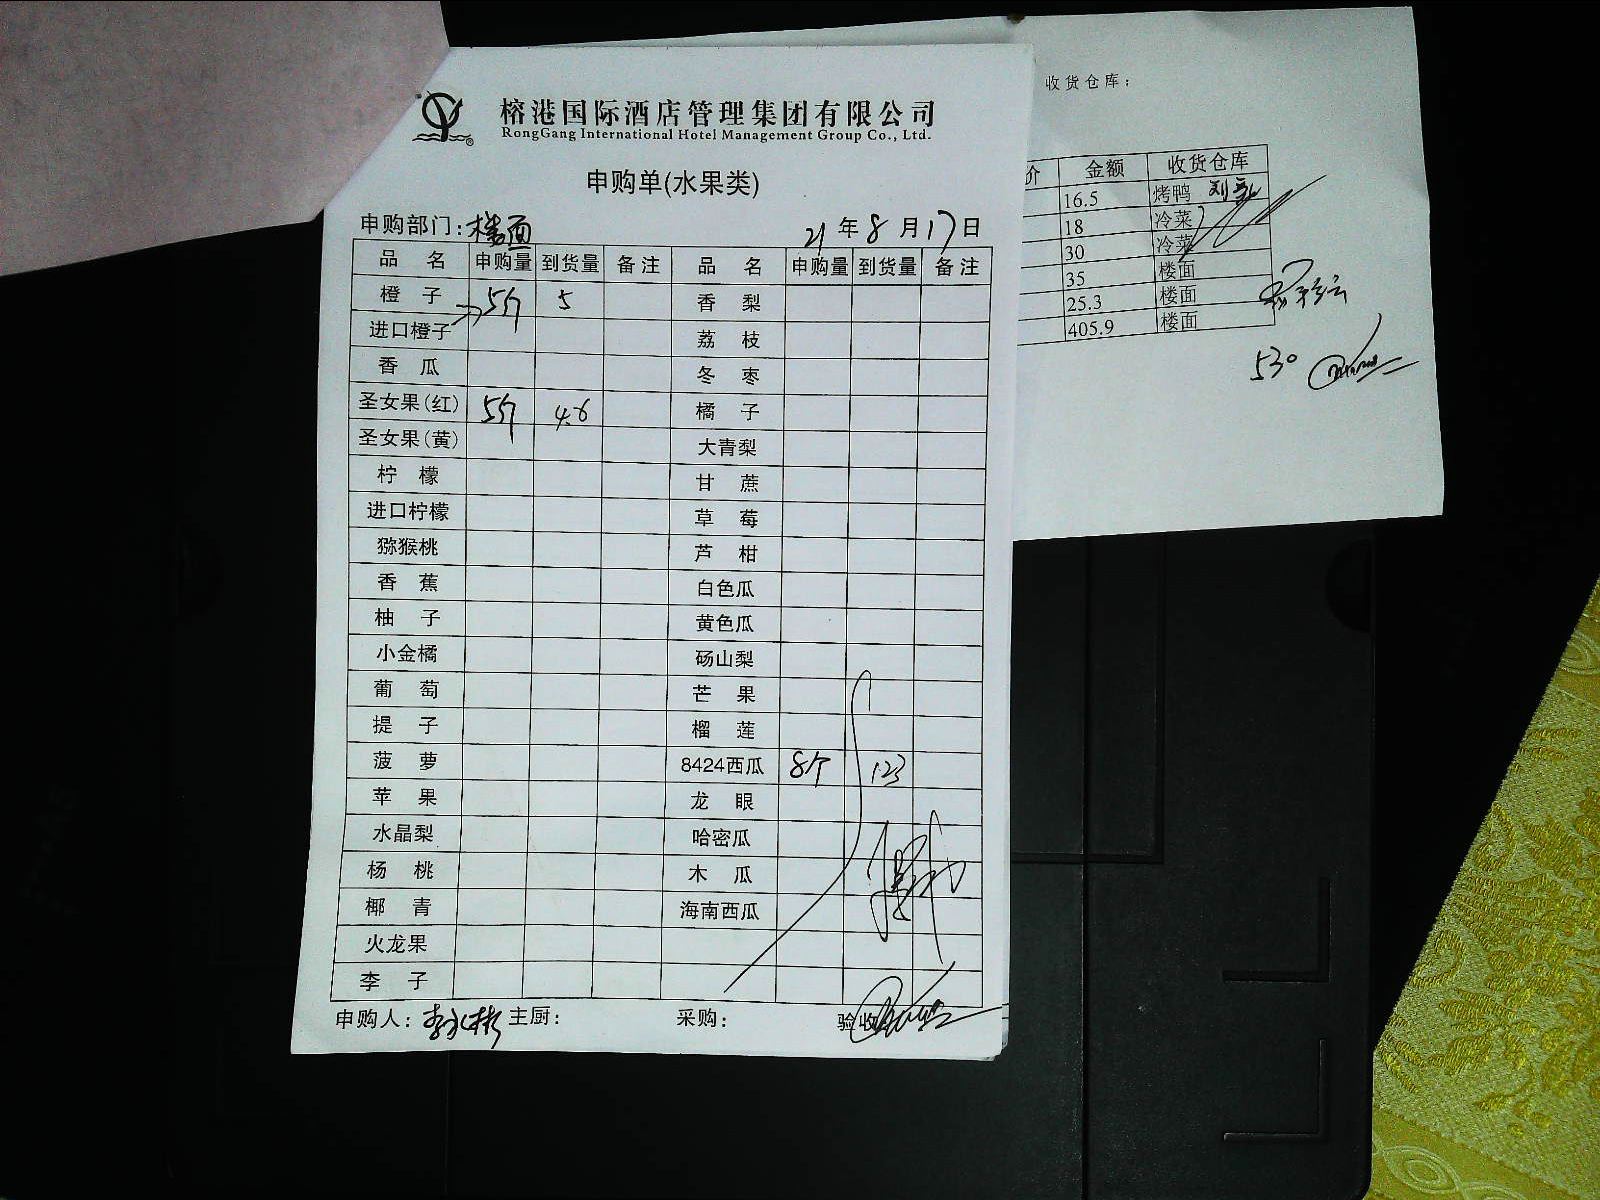 榕港国际酒店管理集团有限公司
RongGang International Hotel Management Group Co., Ltd.
申购单(水果类)
申购部门:楼面 21年8月17日
品名 申购量 到货量 备注 品名 申购量 到货量 备注
橙子 5斤 5 香梨
进口橙子 荔枝
香瓜 冬枣
圣女果(红) 5斤 4.6 橘子
圣女果(黄) 大青梨
柠檬 甘蔗
进口柠檬 草莓
猕猴桃 芦柑
香蕉 白色瓜
柚子 黄色瓜
小金橘 砀山梨
葡萄 芒果
提子 榴莲
菠萝 8424西瓜 8个 123
苹果 龙眼
水晶梨 哈密瓜
杨桃 木瓜
椰青 海南西瓜
火龙果
李子
申购人:李永彬 主厨: 采购: 验收
收货仓库:
价 金额 收货仓库
16.5 烤鸭
18 冷菜
30 冷菜
35 楼面
25.3 楼面
405.9 楼面
530